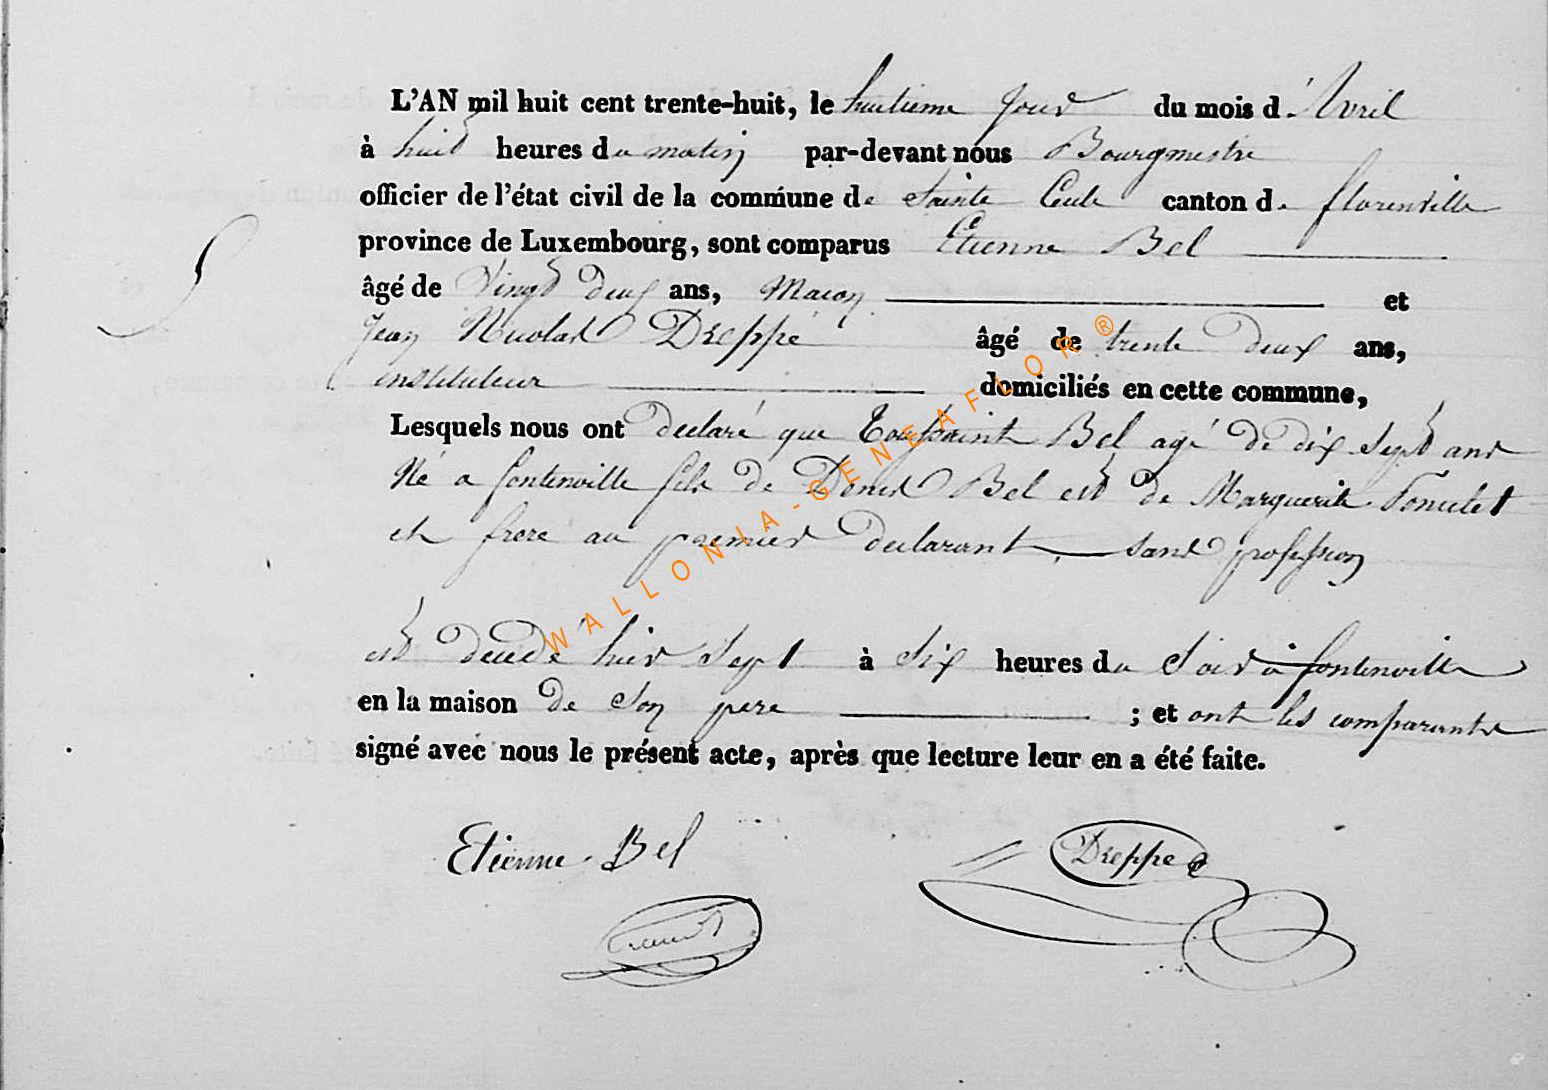 L'AN mil huit cent trente-huit, le huitieme jour du mois d'Avril
à huit heures du matin par-devant nous Bourgmestre
officier de l'état civil de la commune de Sainte Cecile canton de florenville
province de Luxembourg, sont comparus Etienne Bel
âgé de Vingt deux ans, Macon et
Jean Nicolas Dreppe âgé de trente deux ans,
instituteur domiciliés en cette commune,
Lesquels nous ont declaré que Toussaint Bel agé de dix sept ans
Né a fontenville fils de Denis Bel et de Marguerite
et frere au premier declarant sans profession
est decedé hier sept à six heures du soir a fontenville
en la maison de son pere ; et ont les comparants
signé avec nous le présent acte, après que lecture leur en a été faite.
Etienne Bel Dreppe
WALLONIA-GENEAFLOR®
5